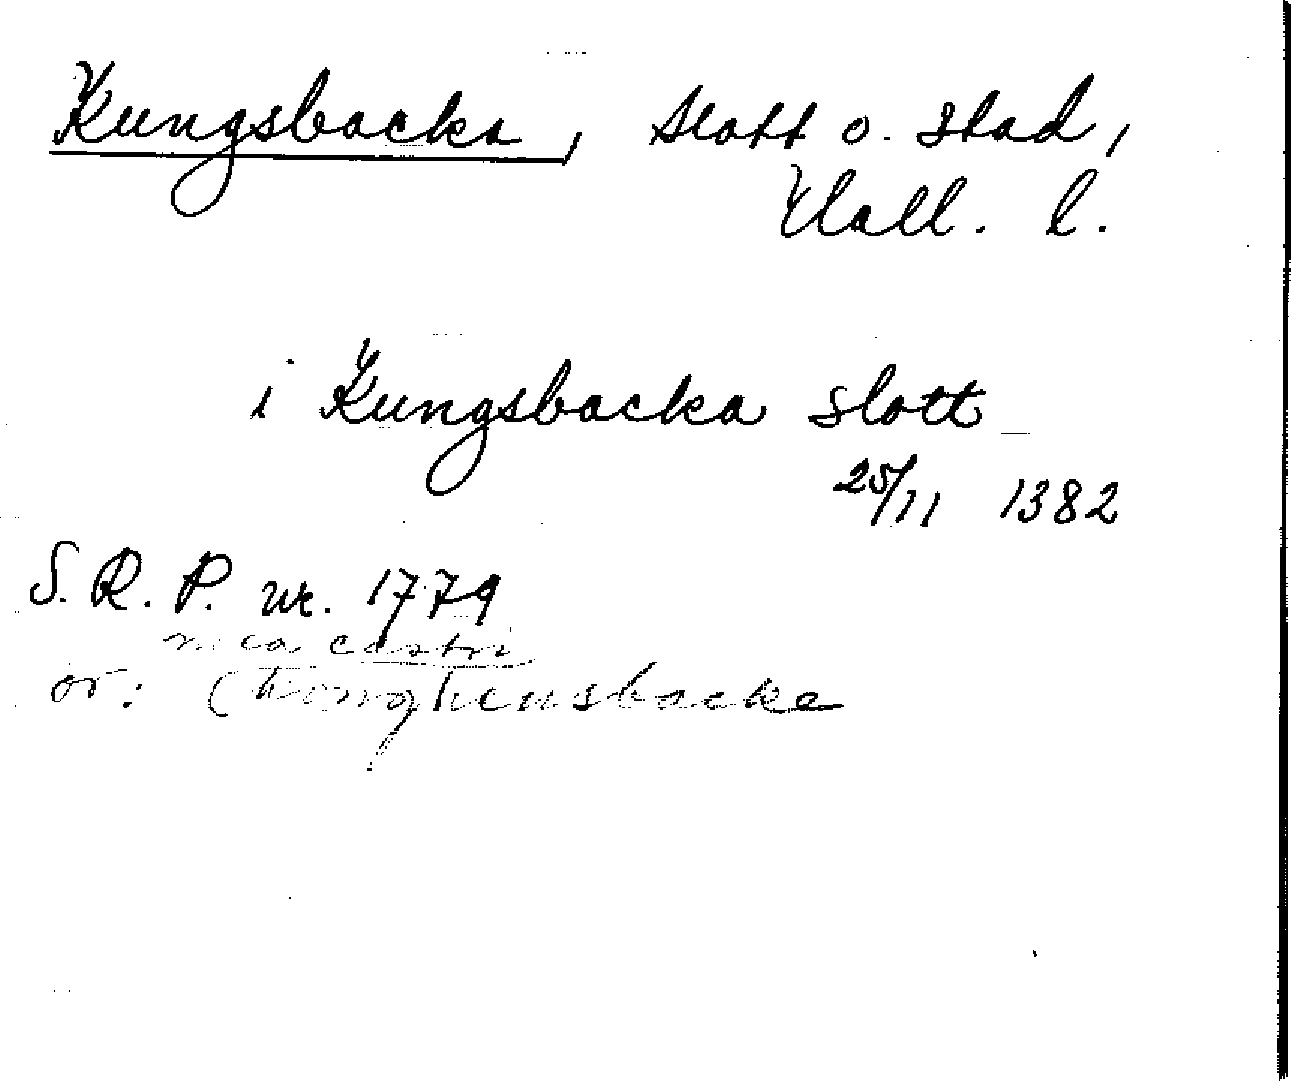 Kungsbacka, slott o. stad,
Hall. l.
i Kungsbacka slott
25/11 1382
S. R. P. nr. 1779
castri
or: